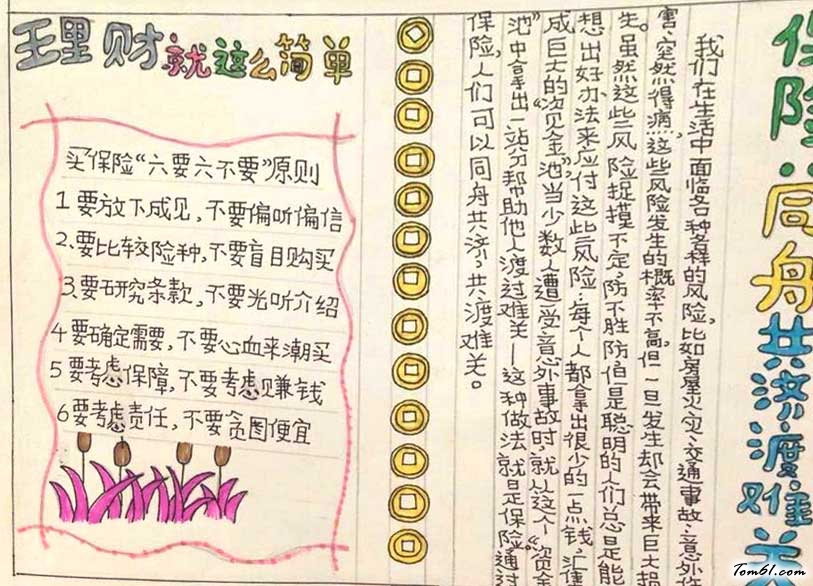 理财就这么简单
买保险“六要六不要”原则
1要放下成见,不要偏听偏信
2、要比较险种,不要盲目购买
3、要研究条款,不要光听介绍
4要确定需要,不要心血来潮买
5要考虑保障,不要考虑赚钱
6要考虑责任,不要贪图便宜
保险:同舟共济渡难关
我们在生活中面临各种各样的风险,比如房屋火灾、交通事故、意外伤
害、突然得病,这些风险发生的概率不高,但一旦发生却会带来巨大损
失。虽然这些风险捉摸不定,防不胜防,但是聪明的人们总是能
想出好办法来应付这些风险:每个人都拿出很少的一点钱,汇集
成巨大的“资金池”,当少数人遭受意外事故时,就从这个“资金
池”中拿出一部分帮助他人渡过难关—这种做法就是保险。通过
保险,人们可以同舟共济,共渡难关。
Tom61.com